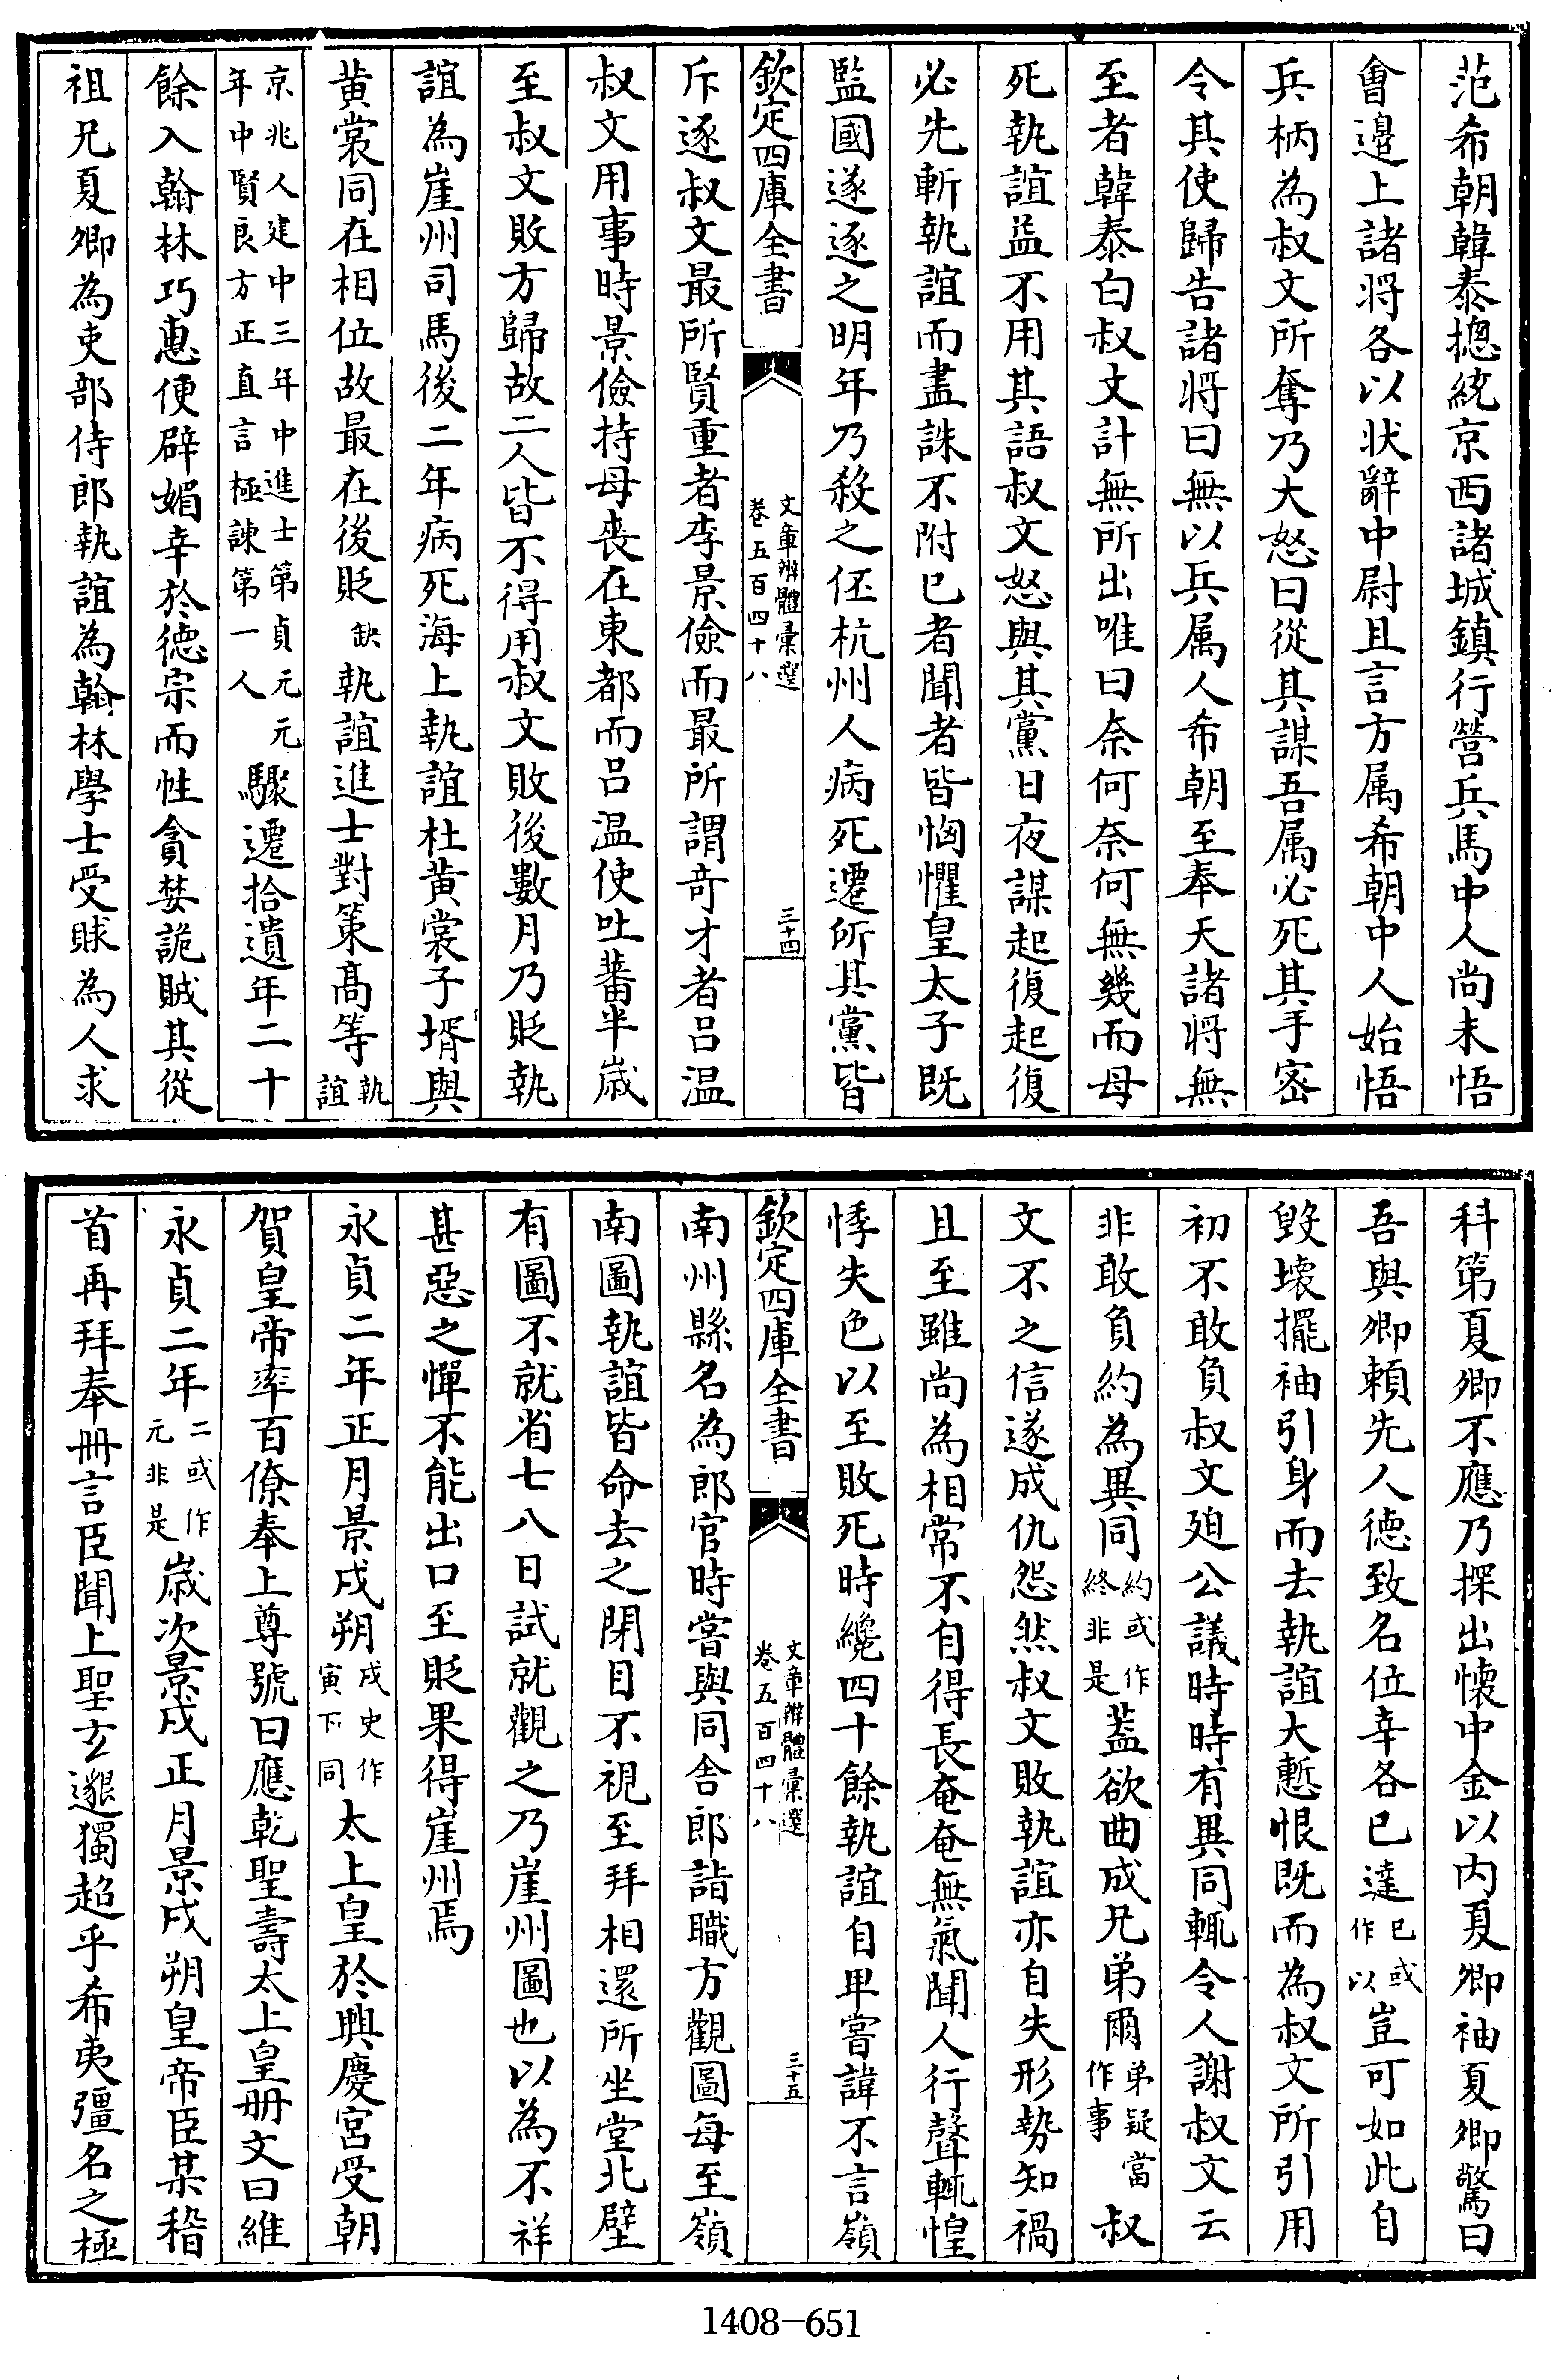 范希朝韓泰揔統京西諸城鎮行營兵馬中人尚未悟
會邉上諸將各以狀辭中尉且言方属希朝中人始悟
兵柄為叔文所奪乃大怒曰從其謀吾属必死其手宻
令其使歸告諸將曰無以兵属人希朝至奉天諸將無
至者韓泰白叔文計無所出唯曰奈何奈何無幾而母
死執誼益不用其語叔文怒與其黨日夜謀起復起復
必先斬執誼而盡誅不附已者聞者皆恟懼皇太子既
監國遂逐之明年乃殺之伾杭州人病死遷所其黨皆
欽定四庫全書
文章辨體彚選
卷五百四十八
三十四
斥逐叔文最所賢重者李景儉而最所謂竒才者吕温
叔文用事時景儉持母喪在東都而吕温使吐蕃半歳
至叔文敗方歸故二人皆不得用叔文敗後數月乃貶執
誼為崖州司馬後二年病死海上執誼杜黄裳子壻與
黄裳同在相位故最在後貶
缺
執誼進士對策髙等
執
誼
京兆人建中三年中進士第貞元元
年中賢良方正直言極諫第一人
驟遷拾遺年二十
餘入翰林巧惠便辟媚幸於德宗而性貪婪詭賊其從
祖兄夏卿為吏部侍郎執誼為翰林學士受賕為人求
科第夏卿不應乃探出懐中金以内夏卿袖夏卿驚曰
吾與卿頼先人德致名位幸各已達
已或
作以
豈可如此自
毁壊擺袖引身而去執誼大慙恨既而為叔文所引用
初不敢負叔文廹公議時時有異同輒令人謝叔文云
非敢負約為異同
約或作
終非是
蓋欲曲成兄弟爾
弟疑當
作事
叔
文不之信遂成仇怨然叔文敗執誼亦自失形勢知禍
且至雖尚為相常不自得長奄奄無氣聞人行聲輒惶
悸失色以至敗死時纔四十餘執誼自卑嘗諱不言嶺
欽定四庫全書
文章辨體彚選
卷五百四十八
三十五
南州縣名為郎官時嘗與同舍郎詣職方觀圖每至嶺
南圖執誼皆命去之閉目不視至拜相還所坐堂北壁
有圖不就省七八日試就觀之乃崖州圖也以為不祥
甚惡之憚不能出口至貶果得崖州焉
永貞二年正月景戌朔
戌史作
寅下同
太上皇於興慶宫受朝
賀皇帝率百僚奉上尊號曰應乾聖壽太上皇册文曰維
永貞二年
二或作
元非是
歳次景戌正月景戌朔皇帝臣某稽
首再拜奉冊言臣聞上聖𤣥邈獨超乎希夷彊名之極
1408-651